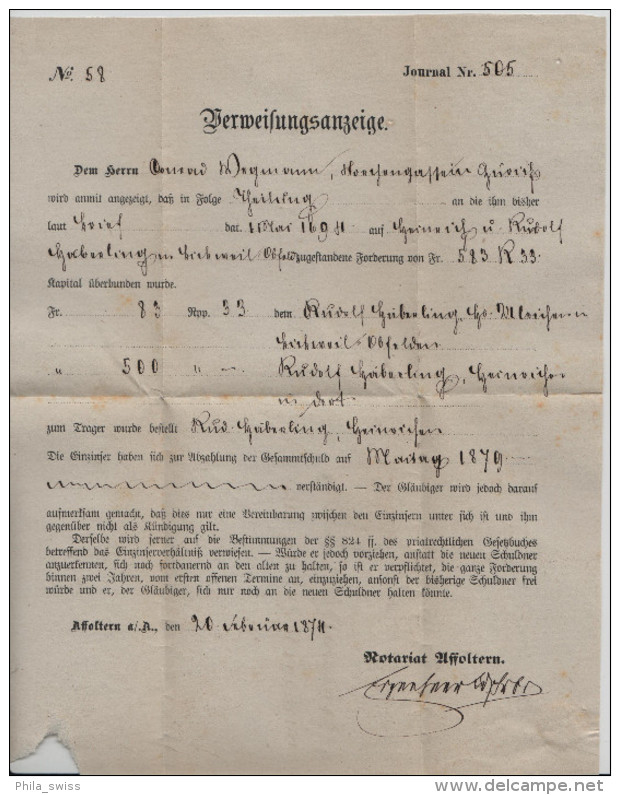 No. 58 Journal Nr. 505
Verweisungsanzeige.
Dem Herrn Conrad Wegmann, in Zürich
wird anmit angezeigt, daß in Folge Theilung an die ihm bisher
laut Brief dat. 11 Mai 1694 auf Heinrich u. Rudolf
Häberling in Bickweil Obfelden zugestandene Forderung von Fr. 583 R 33
Kapital überbunden wurde.
Fr. 83 Rpp. 33 dem Rudolf Häberling, Hs. Ulrichen in
Bickweil-Obfelden
" 500 " – Rudolf Häberling, Heinrichen
in dort
zum Trager wurde bestellt Rud. Häberling, Heinrichen
Die Einzinser haben sich zur Abzahlung der Gesammtschuld auf Maitag 1879
verständigt. — Der Gläubiger wird jedoch darauf
aufmerksam gemacht, daß dies nur eine Vereinbarung zwischen den Einzinsern unter sich ist und ihm
gegenüber nicht als Kündigung gilt.
Derselbe wird ferner auf die Bestimmungen der §§ 824 ff. des privatrechtlichen Gesetzbuches
betreffend das Einzinserverhältniß verwiesen. — Würde er jedoch vorziehen, anstatt die neuen Schuldner
anzuerkennen, sich noch fortdauernd an den alten zu halten, so ist er verpflichtet, die ganze Forderung
binnen zwei Jahren, vom ersten offenen Termine an, einzuziehen, ansonst der bisherige Schuldner frei
würde und er, der Gläubiger, sich nur noch an die neuen Schuldner halten könnte.
Affoltern a/A., den 20. Februar 1874.
Notariat Affoltern.
Phila_swiss delcampe.net